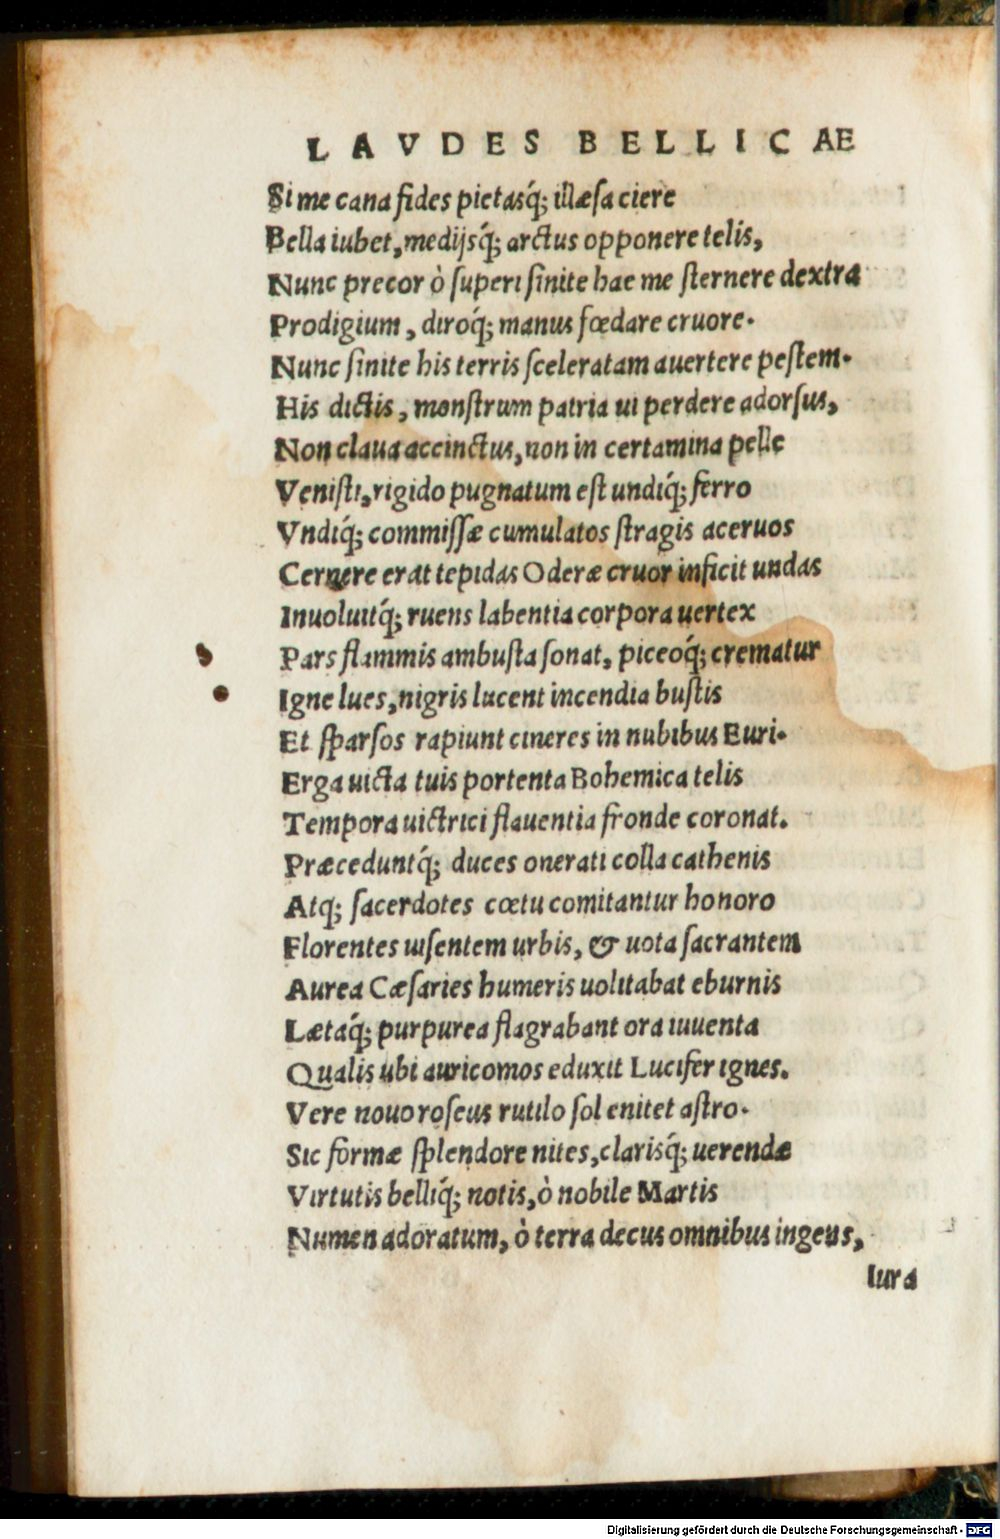 LAVDES BELLICAE
Si me cana fides pietasq́; illæſa ciere
Bella iubet, medijsq́; arctus opponere telis,
Nunc precor ò ſuperi ſinite hac me ſternere dextra
Prodigium, diroq́; manus fœdare cruore.
Nunc ſinite his terris ſceleratam auertere peſtem.
His dictis, monſtrum patria ui perdere adorſus,
Non claua accinctus, non in certamina pelle
Veniſti, rigido pugnatum eſt undiq́; ferro
Vndiq́; commiſſæ cumulatos ſtragis aceruos
Cernere erat tepidas Oderæ cruor inficit undas
Inuoluitq́; ruens labentia corpora uertex
Pars flammis ambuſta ſonat, piceoq́; crematur
Igne lues, nigris lucent incendia buſtis
Et ſparſos rapiunt cineres in nubibus Euri.
Erga uicta tuis portenta Bohemica telis
Tempora uictrici flauentia fronde coronat.
Præceduntq́; duces onerati colla cathenis
Atq; ſacerdotes cœtu comitantur honoro
Florentes uiſentem urbis, & uota ſacrantem
Aurea Cæſaries humeris uolitabat eburnis
Lætaq́; purpurea flagrabant ora iuuenta
Qualis ubi auricomos eduxit Lucifer ignes.
Vere nouo roſeus rutilo ſol enitet aſtro.
Sic formæ ſplendore nites, clarisq́; uerendæ
Virtutis belliq́; notis, ò nobile Martis
Numen adoratum, ò terra decus omnibus ingens,
Iura
Digitalisierung gefördert durch die Deutsche Forschungsgemeinschaft - DFG